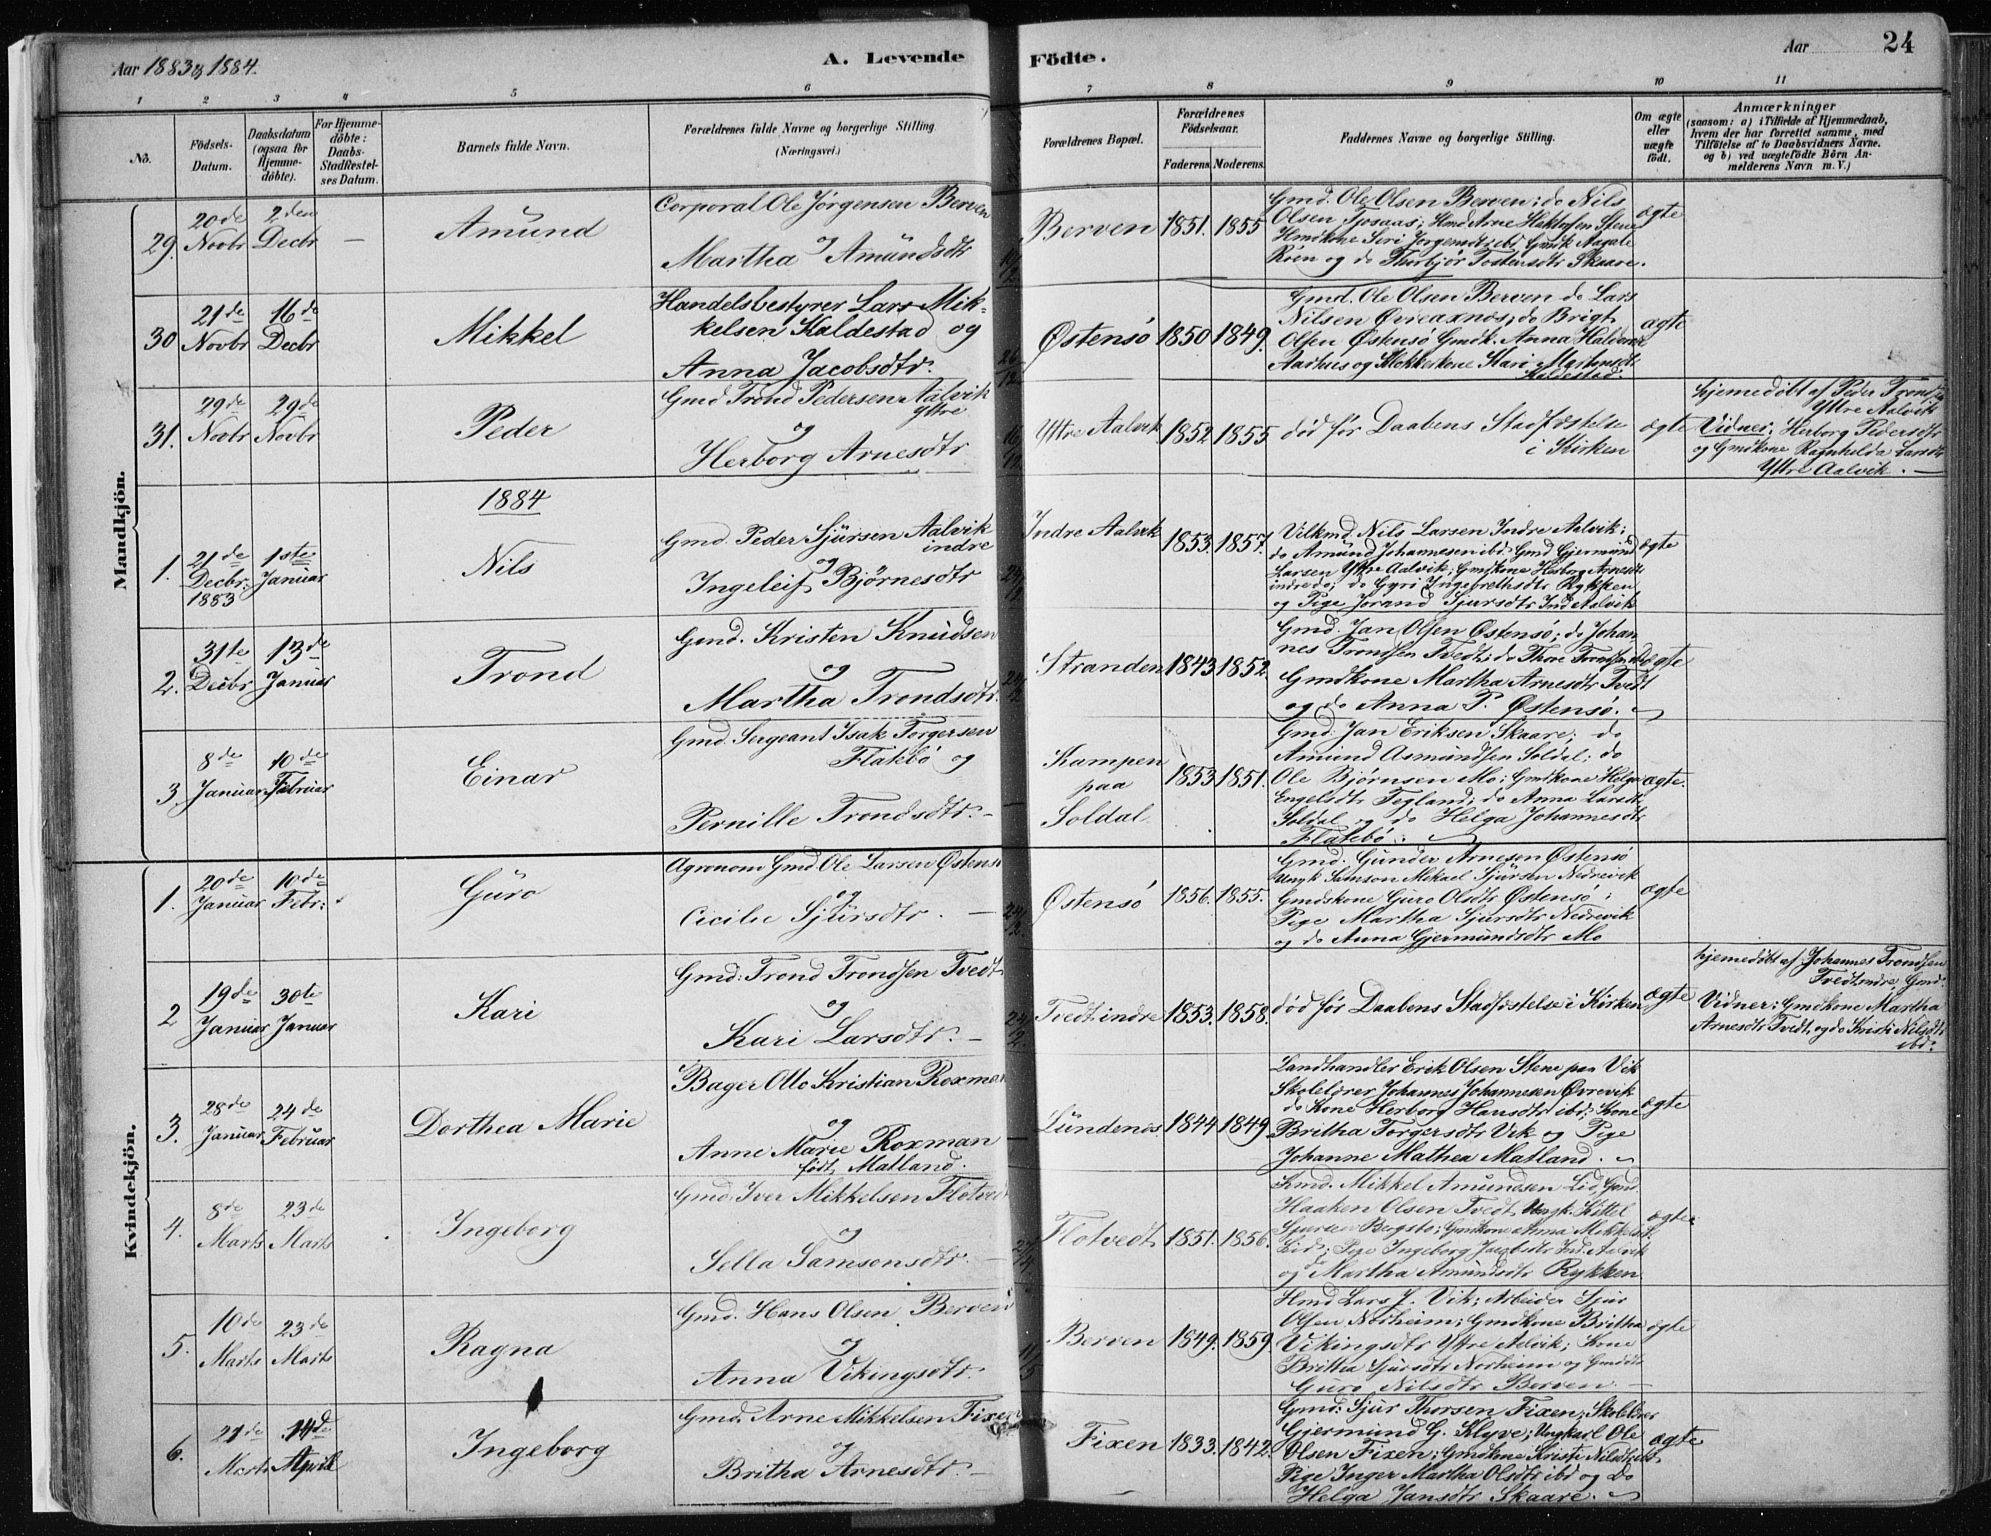 Aar 1883 & 1884.
A. Levende Födte.
Aar
24
1 2 3 4 5 6 7 8 9 10 11
No.
Födsels-
Datum.
Daabsdatum
(ogsaa for
Hjemme-
döbte).
For Hjemme-
döbte:
Daabs-
Stadfæstel-
ses Datum.
Barnets fulde Navn.
Forældrenes fulde Navne og borgerlige Stilling
(Næringsvei.)
Forældrenes Bopæl.
Forældrenes
Födselsaar.
Faderens. Moderens.
Faddernes Navne og borgerlige Stilling.
Om ægte
eller
uægte
födt.
Anmærkninger
(saasom: a) i Tilfælde af Hjemmedaab,
hvem der har forrettet samme, med
Tilföielse af to Daabsvidners Navne.
og b) ved uægtefödte Börn An-
melderens Navn m. V.)
Mandkjön.
29. 20de Novbr
2den Decbr
—
Amund
Corporal Ole Jørgensen Berven
og
Martha Amundsdtr
Berven 1851. 1855
Gmd. Ole Olsen Berven; do Nils
Olsen Tjosaas; Hmd Arne
Hmdkone Siri
og do Thorbjør Tostensdtr Skaare.
ægte
30 21de Novbr
16de Decbr
Mikkel
Handelsbestyrer Lars Mik-
kelsen Kaldestad og
Anna Jacobsdtr.
Østensö 1850 1849.
Gmd. Ole Olsen Berven do Lars
Nilsen Øvreaxnes; do Brigt
Olsen Østensö Gmdk. Anna
Aarhus og Klokkerkone Kari
Kaldestad.
ægte
31. 29de Novbr
29de Novbr
Peder
Gmd Trond Pedersen Aalvik
Yttre
og
Herborg Arnesdtr
Yttre Aalvik 1852 1855
död før Daabens Stadfæstelse
i Kirken
ægte
hjemedöbt af Peder
Yttre Aalvik
Vidner: Herborg Pedersdtr
og Gmdkone Ragnhilda Larsdtr
Yttre Aalvik. —
1884
1. 21de Decbr. 1883
1ste Januar
Nils
Gmd. Peder Sjursen Aalvik
indre
og
Ingeleif Bjørnesdtr
Indre Aalvik 1853. 1857.
Nils Larsen Indre Aalvik;
do Amund Johannesen ibd. Gmd Gjermund
Larsen Yttre Aalvik; Gmdkone Herborg Arnesdtr
indre do; do Gyri Ingebrethsdtr Rykken
og Pige Jorand Sjursdtr Ind Aalvik
ægte
2. 31te Decbr
13de Januar
Trond
Gmd. Kristen Knudsen
og
Martha Trondsdtr.
Stranden 1843 1852
Gmd. Jan Olsen Østensö; do Johan
nes Trondsen Tvedt; do Thore
Gmdkone Martha Arnesdtr Tvedt
og do Anna P. Østensö.
ægte
3 8de Januar
10de Februar
Einar
Gmd. Sergeant Isak Torgersen
Flatebö og
Pernille Trondsdtr. —
Kampen
paa
Soldal
1853 1851.
Gmd. Jan Eriksen Skaare; do
Amund Asmundsen Soldal; do
Ole Bjørnsen Mo; Gmdkone Helga
Engelsdtr Tegland; do Anna Larsdtr
Soldal og do Helga Johannesdtr
Flatebö.
ægte.
Kvindekjön.
1. 20de Januar
10de Febr:
Guro
Agronom Gmd Ole Larsen Østensö
og
Cicilie Sjursdtr. —
Østensö 1856. 1855.
Gmd. Gunder Arnesen Østensö
Ungk Samson Mikael Sjursen Nedrevik
Gmdkone Guro Olsdtr Østensö;
Pige Martha Sjursdtr Nedrevik
og do Anna Gjermundsdtr Mo
ægte
2 19de Januar
30te Januar
Kari
Gmd: Trond Trondsen Tvedt
og
Kari Larsdtr. —
Tvedt indre 1853. 1858.
död før Daabens Stadfæstelse i Kirken
ægte
hjemedöbt af Johannes Trondsen
Tvedt indre Gmd.
Vidner: Gmdkone Martha
Arnesdtr Tvedt og do Kristi Nilsdtr
ibd.
3. 28de Januar
24de Februar
Dorthea Marie
Bager Otto Kristian Roxman
og
Anne Marie Roxman
født Matland.
Lundenes. 1844 1849
Landhandler Erik Olsen Stene paa Vik
Skolelærer Johannes Johannesen Øvrevik
do Kone Herborg Hansdtr ibd; Kone
Britha Torgersdtr Vik og Pige
Johanne Mathea Matland.
ægte
4. 8de Marts
23de Marts
Ingeborg
Gmd. Iver Mikkelsen Flotvedt
og
Sella Samsonsdtr. —
Flotvedt 1851. 1856.
Mikkel Amundsen Lid, Gmd.
Haaken Olsen Tvedt Ungk. Kittel
Sjursen Bergstö; Gmdkone Anna
Lid; Pige Ingeborg Jacobsdtr Ind. Aalvik
og do Martha Amundsdtr Rykken
ægte
5. 10de Marts
23de Marts
Ragna
Gmd. Hans Olsen Berven
og
Anna Vikingsdtr.
Berven 1849. 1859
Hmd Lars J. Vik; Arbeider Sjur
Olsen Norheim; Gmdkone Britha
Vikingsdtr Yttre Aalvik; Kone
Britha Sjursdtr Norheim og
Guro Nilsdtr Berven —
ægte
6. 21de Marts
14de April
Ingeborg
Gmd. Arne Mikkelsen Fixen
og
Britha Arnesdtr. —
Fixen 1833. 1842.
Gmd: Sjur Thorsen Fixen; Skolelærer
Gjermund G. Klyve; Ungkarl Ole
Olsen Fixen; Gmdkone Kristi Nilsdtr ibd
Pige Inger Martha Olsdtr ibd og do
Helga Jansdtr Skaare.
ægte